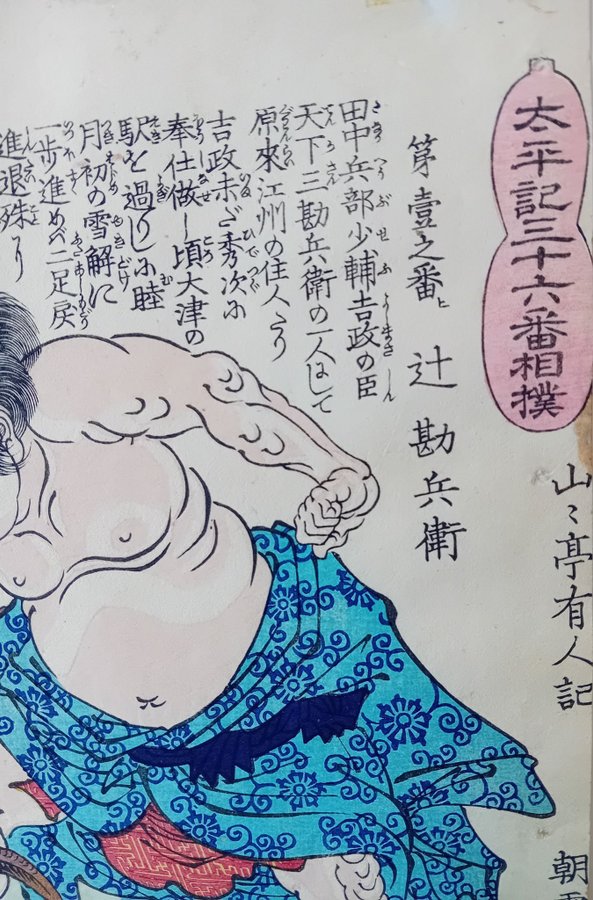 太平記三十六番相撲
山々亭有人記
朝
第壹之番ヒ
辻勘兵衛
田中兵部少輔吉政の臣
天下三勘兵衛の一人にして
原來江州の住人たり
吉政未だ秀次に
奉仕做し頃大津の
駅を過りし小睦
月初の雪解に
一歩進めバ二足戻
進退殊り